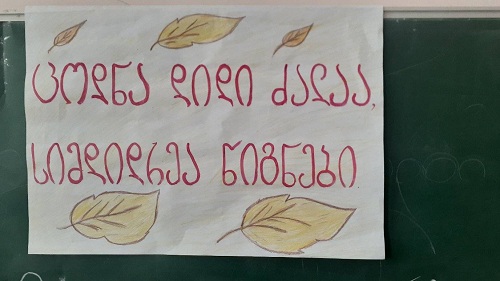 ცოდნა დიდი ძალაა,
სიმდიდრეა წიგნები.